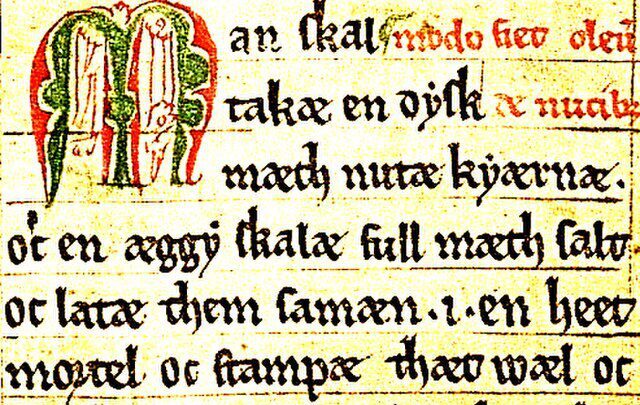 Man ſkal modo fiet oleū
takæ en dẏſk de nucibꝫ
mæth nutæ kẏærnæ.
oc en æggẏ ſkalæ full mæth ſalt
oc latæ them ſamæn .i. en heet
mortel oc ſtampæ thæt wæl oc